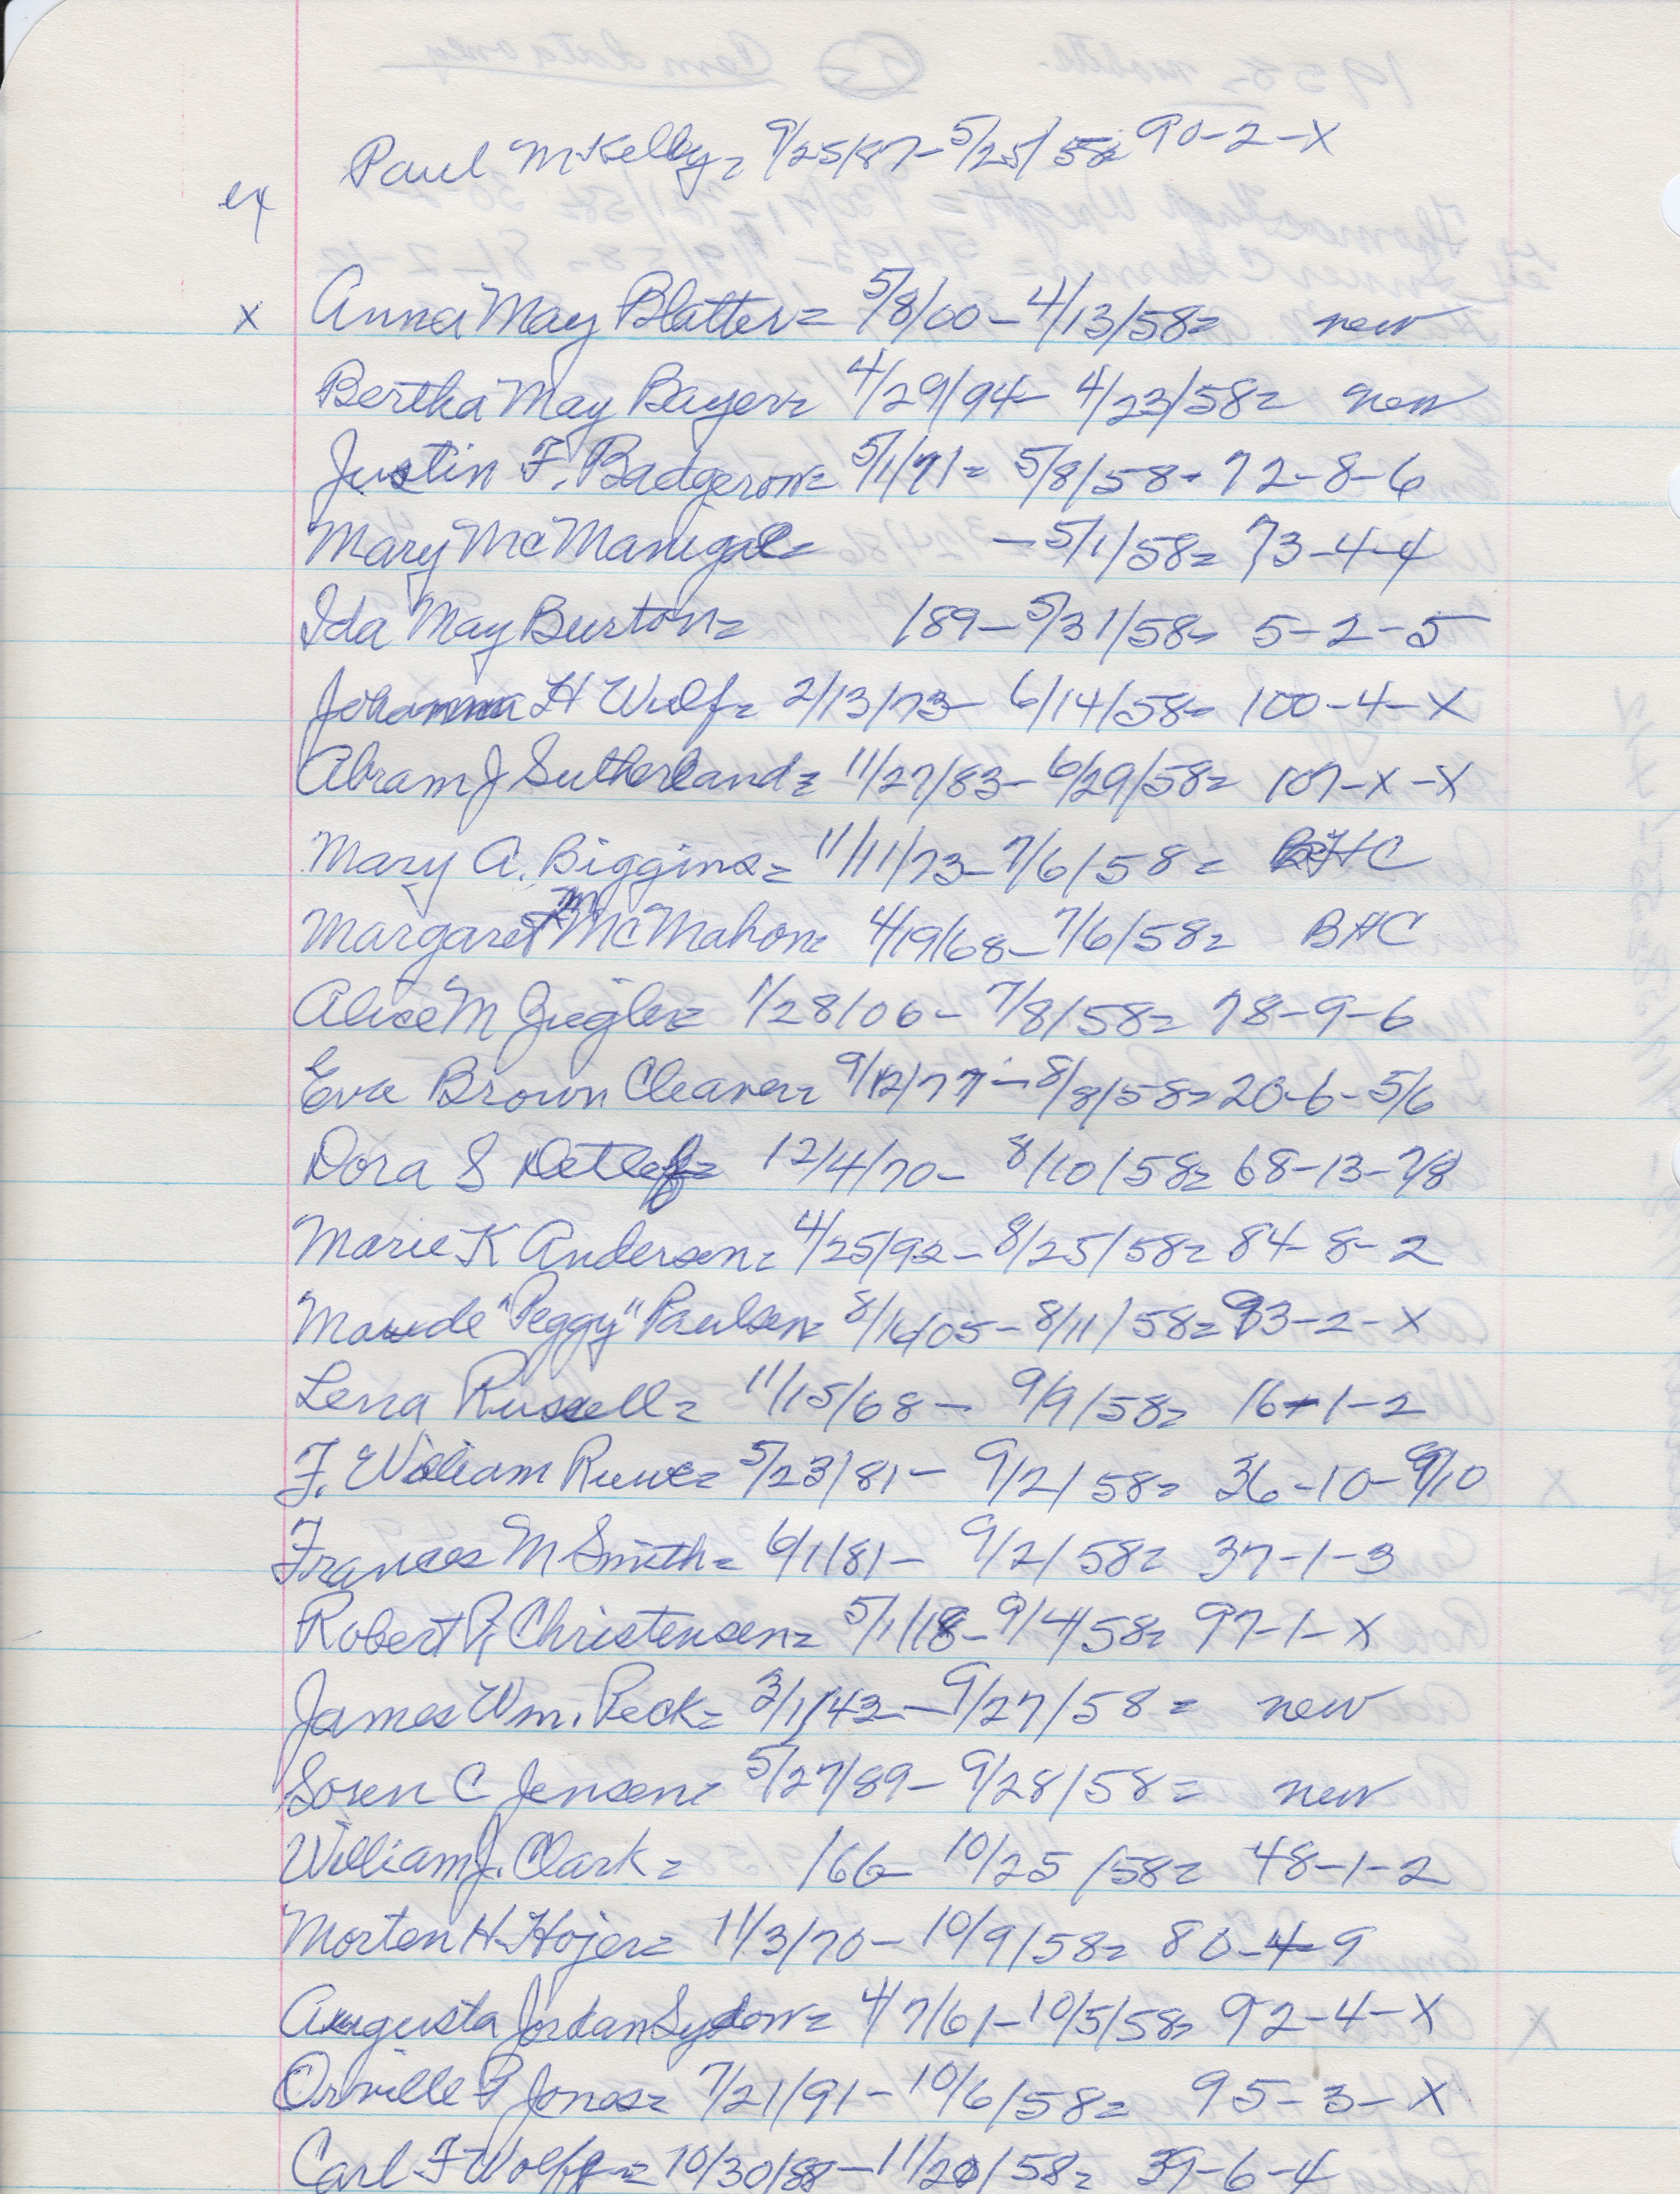 Paul McKelly= 9/25/87-5/25/58= 90-2-X
ex
X Anna May Blatter= 5/8/00-4/13/58= new
Bertha May Bayer= 4/29/94- 4/23/58= new
Justin F. Badgerow= 5/1/71= 5/8/58- 72-8-6
Mary McManigal= -5/1/58= 73-4-4
Ida May Burton= /89-5/31/58= 5-2-5
Johanna H Wulf= 2/13/73- 6/14/58= 100-4-X
Abram J Sutherland= 11/27/83- 6/29/58= 107-X-X
Mary A. Biggins= 11/11/73-7/6/58= BHC
Margaret M McMahon= 4/19/68-7/6/58= BHC
Alice M Ziegler= 1/28/06- 7/8/58= 78-9-6
Eva Brown Cleaver= 9/12/77-8/8/58= 20-6-5/6
Dora S Detlef= 12/4/70- 8/10/58= 68-13-7/8
Marie K Andersen= 4/25/92-8/25/58= 84-8-2
Maude "Peggy" Paulsen= 8/16/05-8/11/58= 93-2-X
Lena Russell= 11/15/68- 9/9/58= 16-1-2
F. William Ruwe= 5/23/81- 9/2/58= 36-10-9/10
Frances M Smith= 6/1/81- 9/2/58= 37-1-3
Robert P. Christensen= 5/1/18-9/4/58= 97-1-X
James Wm. Peck= 3/1/42-9/27/58= new
Soren C Jensen= 5/27/89- 9/28/58= new
William J. Clark= /66- 10/25/58= 48-1-2
Morten H. Hojer= 11/3/70- 10/9/58= 80-4-9
Augusta Jordan Sydow= 4/7/61-10/5/58= 92-4-X
Orville P Jones= 7/21/91-10/6/58= 95-3-X
Carl F Wolff= 10/30/88-11/20/58= 39-6-4